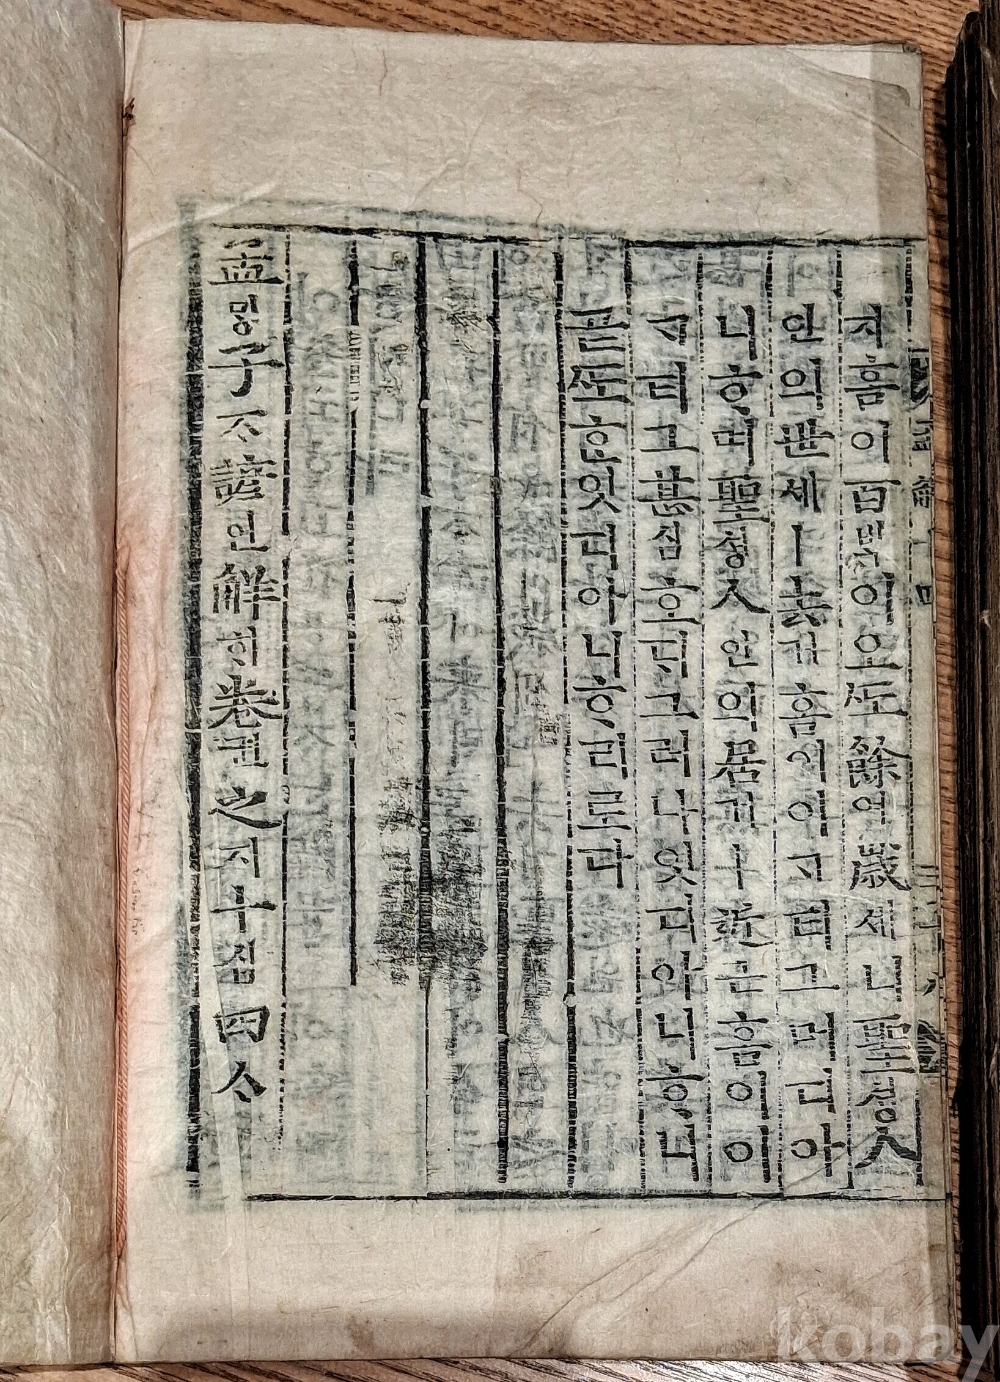 지홈이百ᄇᆡᆨ이오ᄯᅩ餘여歲셰니聖셩人
인의世셰ㅣ去거홈이이ᄀᆞ티그머디아
니ᄒᆞ며聖셩人인의居거ㅣ近근홈이이
ᄀᆞ티그甚심호ᄃᆡ그러나잇디아니ᄒᆞ니
곧ᄯᅩᄒᆞᆫ잇디아니ᄒᆞ리로다
孟ᄆᆡᆼ子ᄌᆞ諺언解ᄒᆡ卷권之지十십四ᄉᆞ
kobay